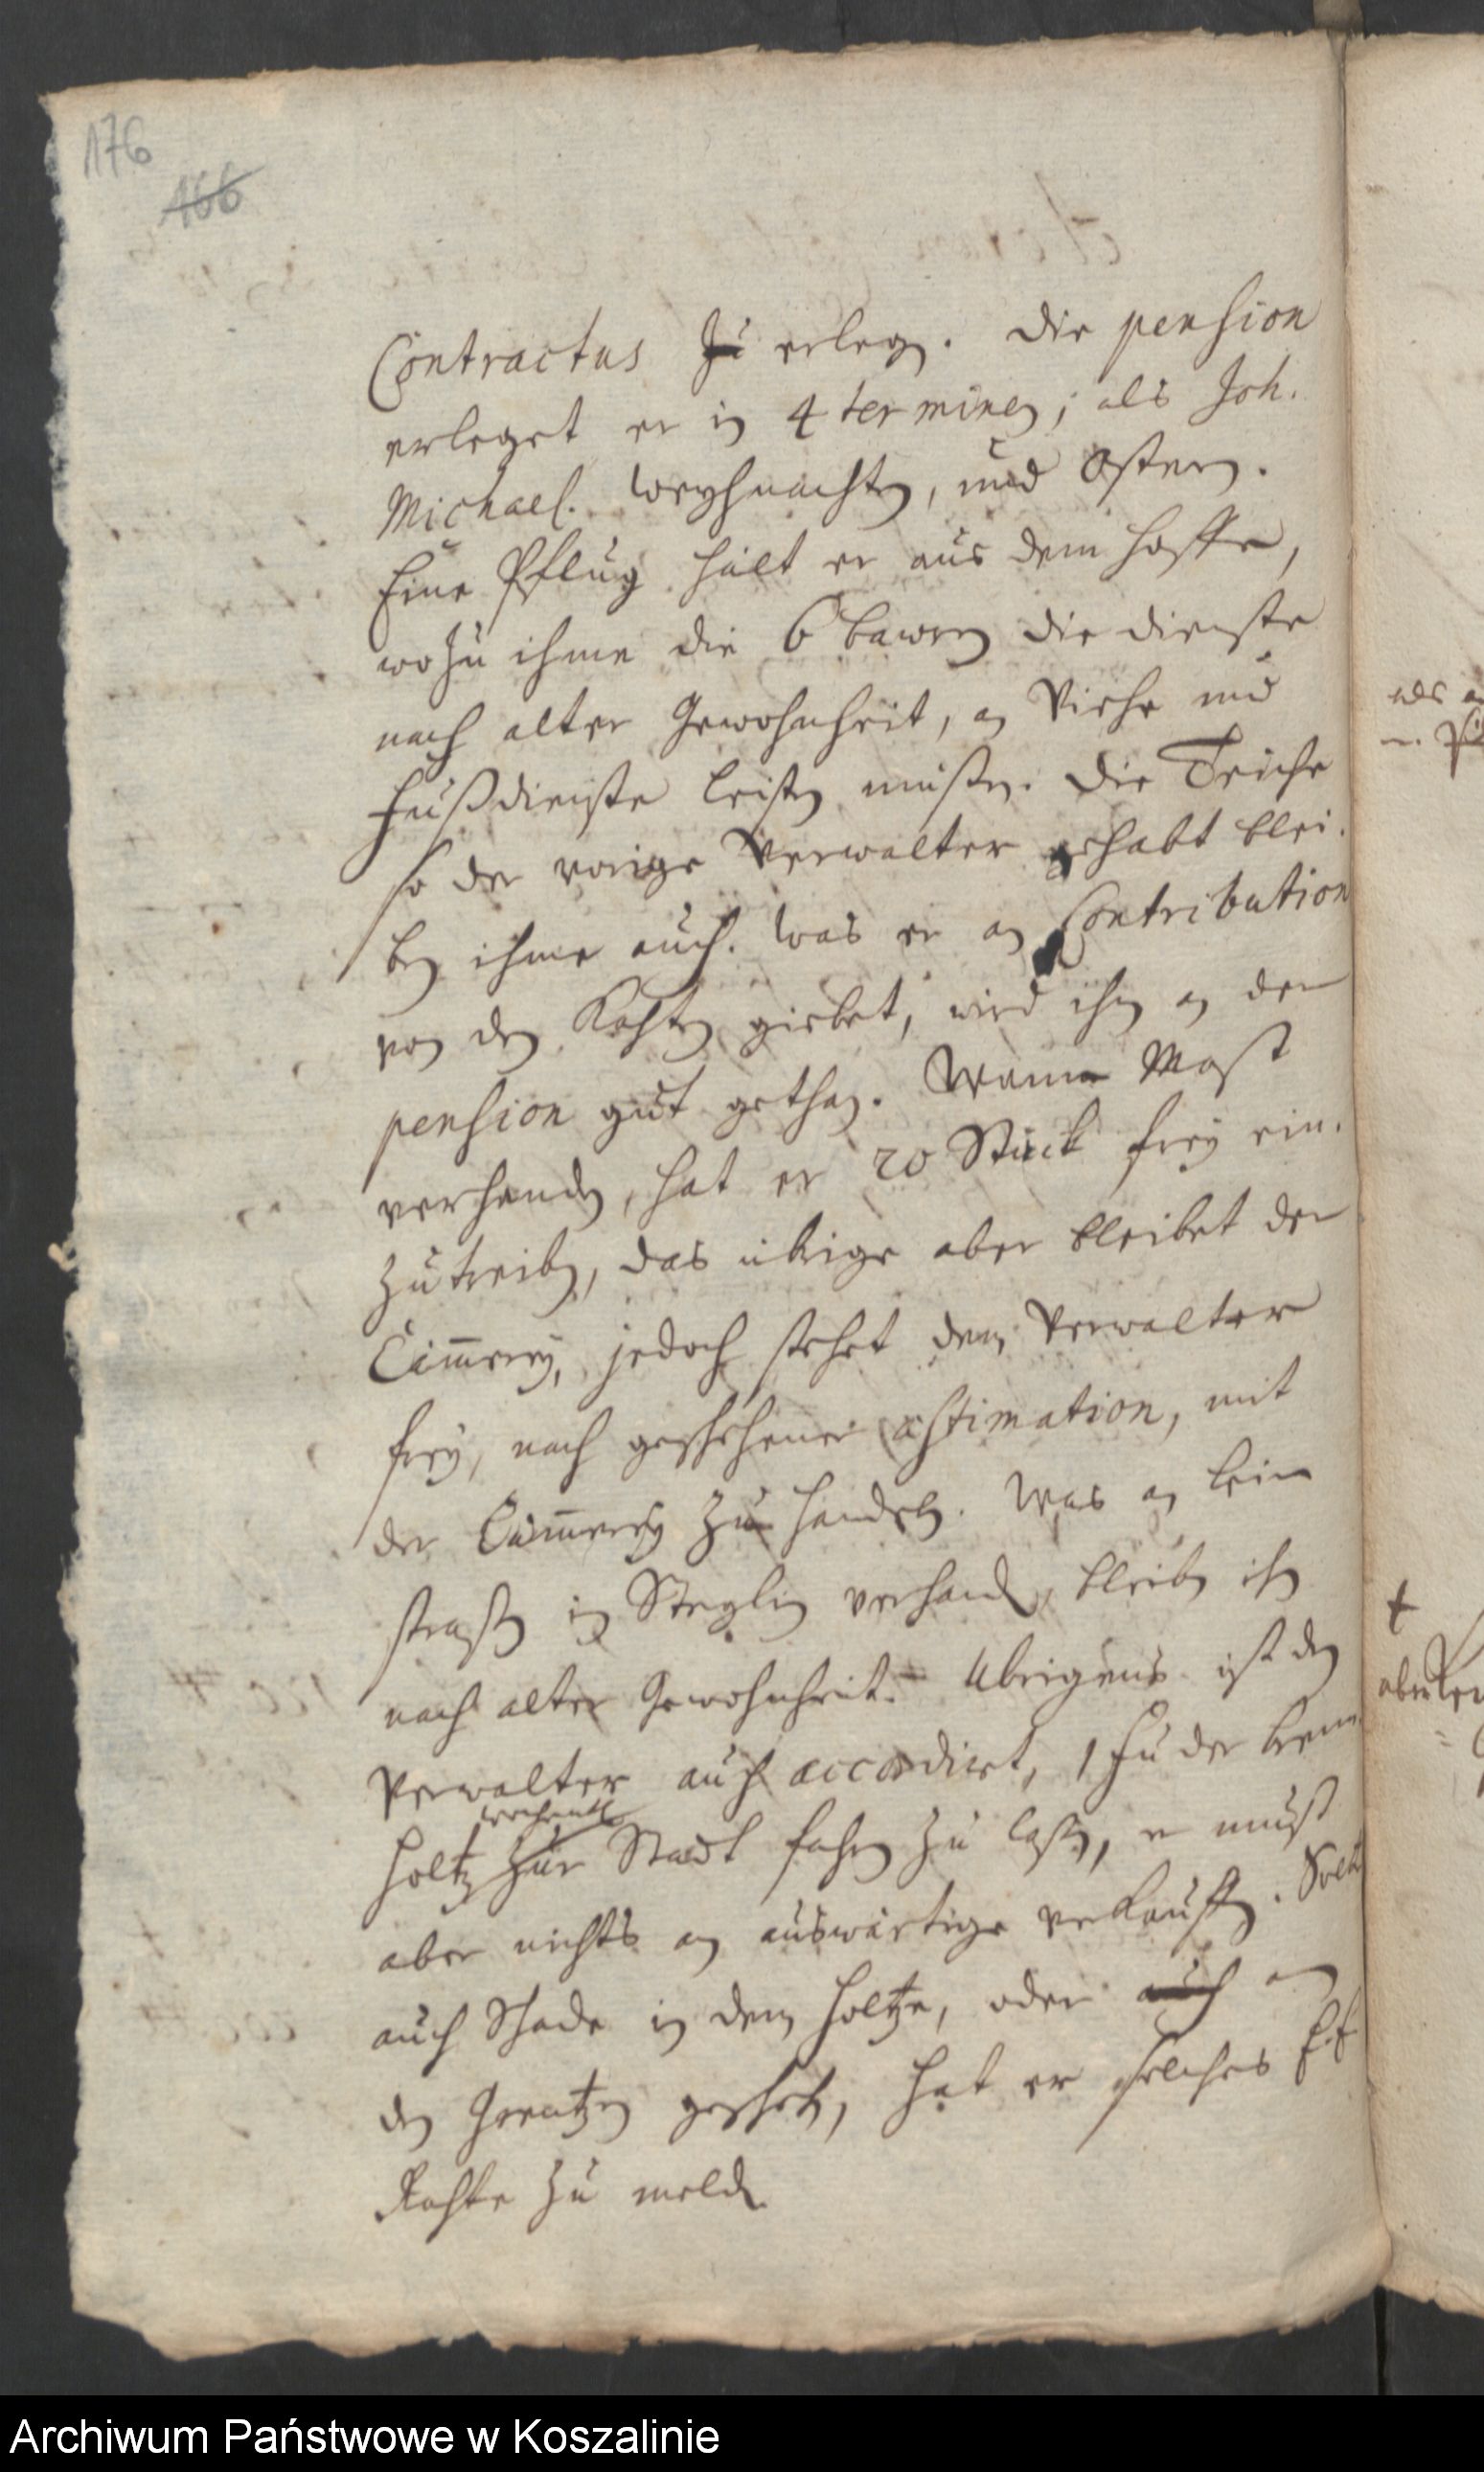 176
166
Contractus zu erlegen. Die pension
erleget er in 4 terminen; als Joh.
Michael. Weyhnachten, und Ostern.
Eine Pflug hält er aus dem Hoffe,
wozu ihme die 6 bawren die dienste
nach alter Gewohnheit, an Viehe und
Fußdienste leisten müßen. Die Teiche
so der vorige Verwalter gehabt blei-
ben ihme auch. Was er an Contribution
von den Kahten giebet, wird ihm an der
pension gut gethan. Wann Mast
verhanden, hat er 20 Stück frey ein-
zutreiben, das übrige aber bleibet der
Cämmerey, jedoch stehet dem Verwalter
frey, nach geschehener æstimation, mit
der Cämmerey zu handeln. Was an
in Steglin verhanden, bleiben ihm
nach alter Gewohnheit. Ubrigens ist dem
Verwalter auch accordiret, 1 Fuder brenn
wochentl.
Holtz zur Stadt fahren zu laßen, er muß
aber nichts an auswärtige verkauffen. Solte
auch Schade in dem Holtze, oder auch an
den Grentzen geschehen, hat er solches E. E.
Rahte zu melden
als
aber
Archiwum Państwowe w Koszalinie